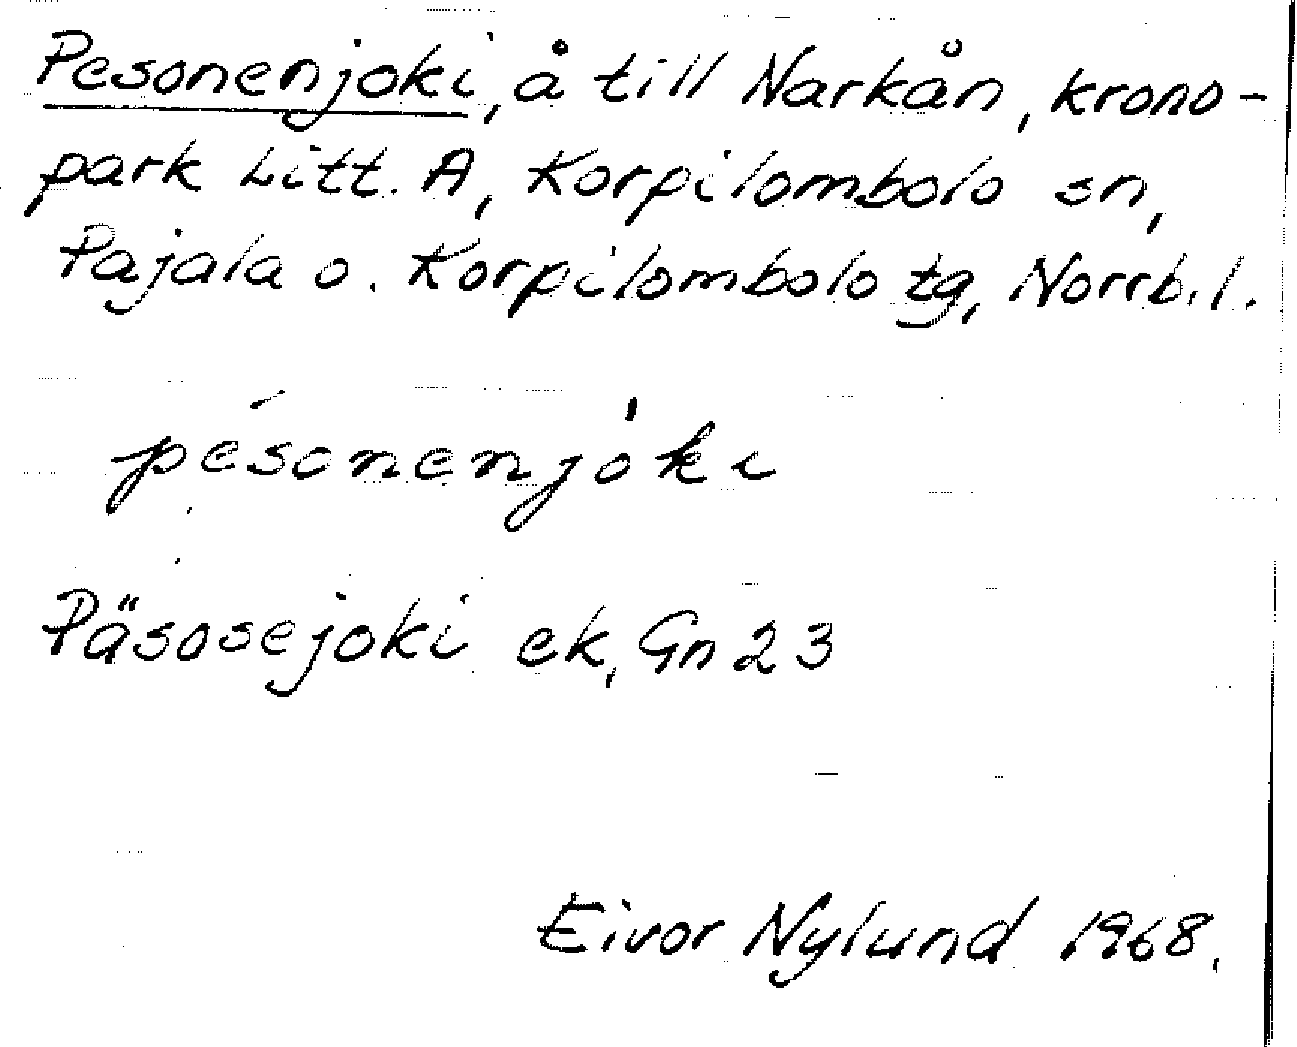 Pesonenjoki, å till Narkån, krono-
park Litt. A, Korpilombolo sn,
Pajala o. Korpilombolo tg, Norrb. l.
pésonenjòki
Päsosejoki ek, Gn 23
Eivor Nylund 1968.